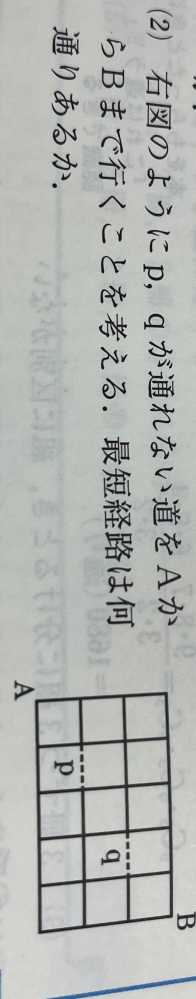 (2) 右図のようにp, qが通れない道をAか
らBまで行くことを考える. 最短経路は何
通りあるか.
B
q
p
A